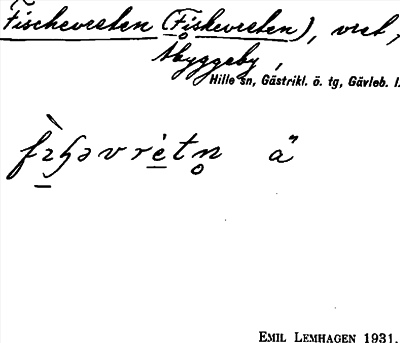 Fischevreten (Fiskevreten), vret,
Åbyggeby,
Hille sn, Gästrikl. ö. tg, Gävleb. l.
ä
EMIL LEMHAGEN 1931.